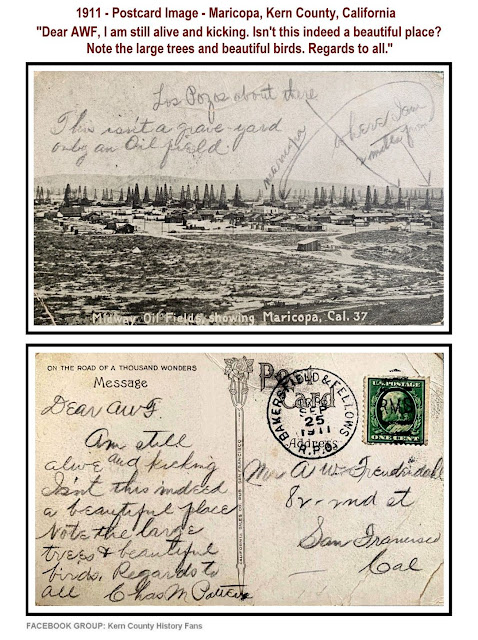 1911 - Postcard Image - Maricopa, Kern County, California
"Dear AWF, I am still alive and kicking. Isn't this indeed a beautiful place?
Note the large trees and beautiful birds. Regards to all."
Los Pozos about there
This isn't a grave-yard
only an Oil field.
maricopa
where I am
miles from
Midway Oil Fields, showing Maricopa, Cal. 37
ON THE ROAD OF A THOUSAND WONDERS
Message
Dear AWF.
Am still
alive and kicking
Isn't this indeed
a beautiful place
Note the large
trees & beautiful
birds. Regards to
all Chas M
Post
Card
Address
BAKERSFIELD & FELLOWS
SEP
25
1911
R.P.O.
U.S. POSTAGE
ONE CENT
Mrs A W
82 - 2nd st
San Francisco
Cal
FACEBOOK GROUP: Kern County History Fans